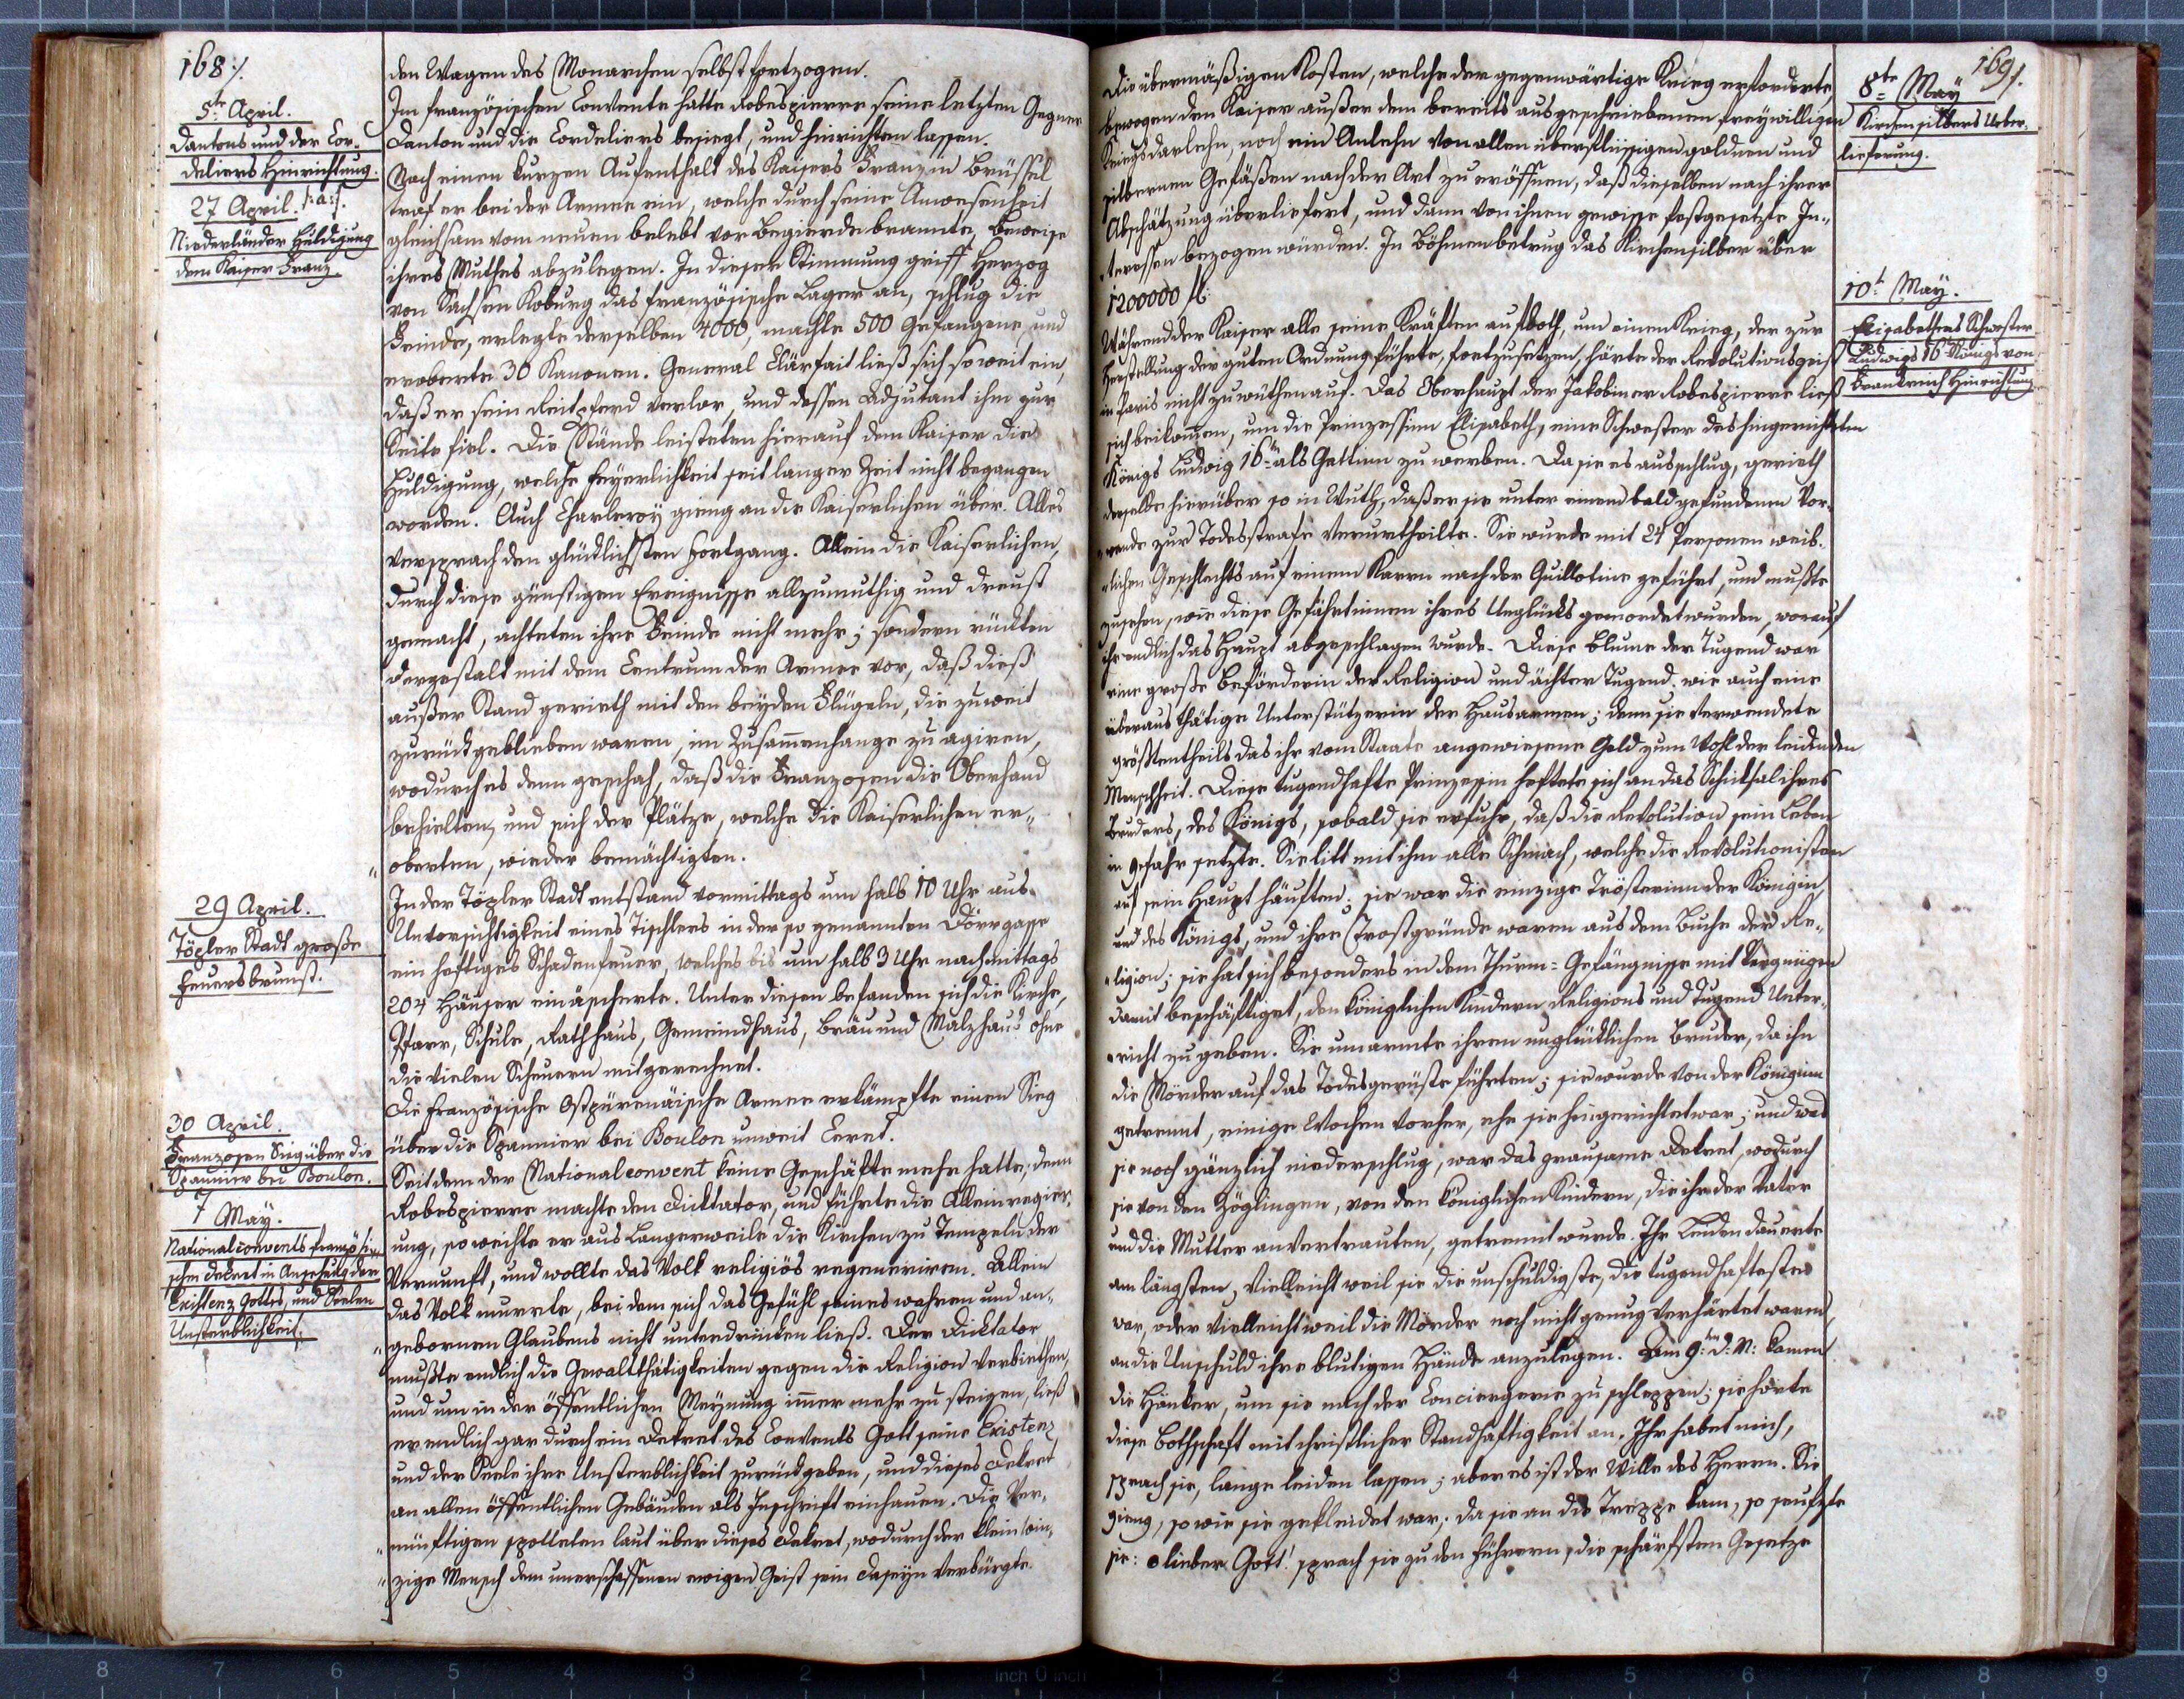 168 ⁒.
5te April.
Dantons und der Cor-
deliers Hinrichtung.
27 April. p: a: f.
Niederländer Huldigung
dem Kaiser Franz.
29 April.
Töpler Stadt große
Feuersbrunst.
30 April.
Franzosen Sieg über die
Spannier bei Boulon.
7 May.
Nationalconvents französi-
schen Dekret in Ansehung der
Existenz Gottes, und Seelen
Unsterblichkeit.
den Wagen des Monarchen selbst fortzogen.
Im französischen Convente hatte Robespierre seine letzten Gegner
Danton und die Cordeliers besiegt, und hinrichten lassen.
Nach einen kurzen Aufenthalt des Kaisers Franz in Brüssel
traf er bei der Armee ein, welche durch seine Anwesenheit
gleichsam vom neuen belebt vor Begierde brannte, Beweise
ihres Muthes abzulegen. In dieser Stimmung griff Herzog
von Sachsen Koburg das französische Lager an, schlug die
Feinde, erlegte derselben 4000, machte 500 Gefangene, und
eroberte 30 Kanonen. General Clärfait ließ sich so weit ein,
daß er sein Reitpferd verlor, und dessen Adjutant ihm zur
Seite fiel. Die Stände leisteten hierauf dem Kaiser die
Huldigung, welche Feyerlichkeit seit langer Zeit nicht begangen
worden. Auch Charleroy gieng an die Kaiserlichen über. Alles
versprach den glücklichsten Fortgang. Allein die Kaiserlichen,
durch diese günstigen Ereignisse allzumuthig und dreust
gemacht, achteten ihre Feinde nicht mehr; sondern rückten
dergestalt mit dem Centrum der Armee vor, daß dieß
außer Stand gerieth mit den beyden Flügeln, die zuweit
zurückgeblieben waren, im Zusam̅enhange zu agiren,
wodurch es denn geschah, daß die Franzosen die Oberhand
behielten, und sich der Plätze, welche die Kaiserlichen er-
"oberten, wieder bemächtigten.
In der Töpler Stadt entstand vormittags um halb 10 Uhr aus
Unvorsichtigkeit eines Tischlers in der so genannten Dörrgasse
ein heftiges Schadenfeuer, welches bis um halb 3 Uhr nachmittags
204 Häuser einäscherte. Unter diesen befanden sich die Kirche,
Pfarr, Schule, Rathhaus, Gemeindhaus, Bräu und Malzhaus ohne
die vielen Scheuern mitgerechnet.
Die französische Ostpürenäische Armee erkämpfte einen Sieg
über die Spannier bei Boulon unweit Ceret.
Seit dem der Nationalconvent keine Geschäfte mehr hatte, denn
Robespierre machte den Dicktator, und führte die Alleinregier,
ung, so weihte er aus Langerweile die Kirchen zu Tempeln der
Vernunft, und wollte das Volk religiös regeneriren. Allein
das Volk murrte, bei dem sich das Gefühl seines wahren und an-
"gebornen Glaubens nicht unterdrücken ließ. Der Dicktator
mußte endlich die Gewaltthätigkeiten gegen die Religion verbiethen,
und um in der öffentlichen Meynung im̅er mehr zu steigen, ließ
er endlich gar durch ein Dekret des Convents Gott seine Existenz
und der Seele ihre Unsterblichkeit zurückgeben, und dieses Dekret
an allen öffentlichen Gebäuden als Inschrift einhauen. Die Ver-
"nünftigen spotteten laut über dieses Dekret, wodurch der klein win-
"zige Mensch dem unerschaffenen ewigen Geist sein Daseyn verbürgte.
169 ⁒.
8te May
Kirchensilbers Ueber-
lieferung.
10te May.
Elisabethens Schwester
Ludwigs 16 Königs von
Frankreich Hinrichtung
Die übermäßigen Kosten, welche der gegenwärtige Krieg erforderte,
bewogen den Kaiser außer dem bereits ausgeschriebenen freywilligen
Kriegsdarlehn, noch ein Anlehn von allen überflüssigen goldnen und
silbernen Gefäßen nach der Art zu eröffnen, daß dieselben nach ihrer
Abschätzung überliefert, und dann von ihnen gewisse festgesetzte In-
"teressen bezogen würden. In Böhmen betrug das Kirchensilber über
1200000 fl.
Während der Kaiser alle seine Kräften aufboth, um einen Krieg, der zur
Herstellung der guten Ordnung führte, fortzusetzen, hörte der Revolutionsgeist
in Paris nicht zu wüthen auf. Das Oberhaupt der Jakobiner Robespierre ließ
sich beikom̅en, um die Prinzessinn Elisabeth, eine Schwester des hingerichteten
Königs Ludwig 16ten als Gattinn zu werben. Da sie es ausschlug, gerieth
derselbe hierüber so in Wuth, daß er sie unter einem bald gefundenen Vor-
"wande zur Todesstrafe verurtheilte. Sie wurde mit 24 Personen weib-
"lichen Geschlechts auf einem Karrn nach der Guillotine geführt, und mußte
zusehen, wie diese Gefährtinnen ihres Unglücks gemordet wurden, worauf
ihr endlich das Haupt abgeschlagen wurde. Diese Blume der Tugend war
eine große Beförderin der Religion und ächter Tugend, wie auch eine
überaus thätige Unterstützerin der Hausarmen; denn sie verwendete
größtentheils das ihr vom Staate angewiesene Geld zum Wohl der leidenden
Menschheit. Diese tugendhafte Prinzessin heftete sich an das Schicksal ihres
Bruders, des Königs, sobald sie erfuhr, daß die Revolution sein Leben
in Gefahr setzte. Sie litt mit ihm alle Schmach, welche die Revolutionisten
auf sein Haupt häuften; sie war die einzige Trösterinn der Königin,
und des Königs, und ihre Trostgründe waren aus dem Buche der Re-
"ligion; sie hat sich besonders in dem Thurm-Gefängnisse mit Vergnügen
damit beschäftiget, den königlichen Kindern Religions und Tugend Unter-
"richt zu geben. Sie umarmte ihren unglücklichen Bruder, da ihn
die Mörder auf das Todesgerüste führten; sie wurde von der Königinn
getrennt, einige Wochen vorher, ehe sie hingerichtet war; und was
sie noch gänzlich niederschlug, war das grausame Dekret, wodurch
sie von den Zöglingen, von den königlichen Kindern, die ihr der Vater
und die Mutter anvertrauten, getrennt wurde. Ihr Leiden dauerte
am längsten, vielleicht weil sie die unschuldigste, die tugendhafteste
war, oder vielleicht weil die Mörder noch nicht genug verhärtet waren,
an die Unschuld ihre blutigen Hände anzulegen. Am 9ten d: M: kamen
die Hänker, um sie nach der Conciergerie zu schleppen; sie hörte
diese Bothschaft mit christlicher Standhaftigkeit an. Ihr habet mich,
sprach sie, lange leiden lassen; aber es ist der Wille des Herrn. Sie
gieng, so wie sie gekleidet war; da sie an die Treppe kam, so seufzte
sie: o lieber Gott! sprach sie zu den Führern, die schärfsten Gesetze